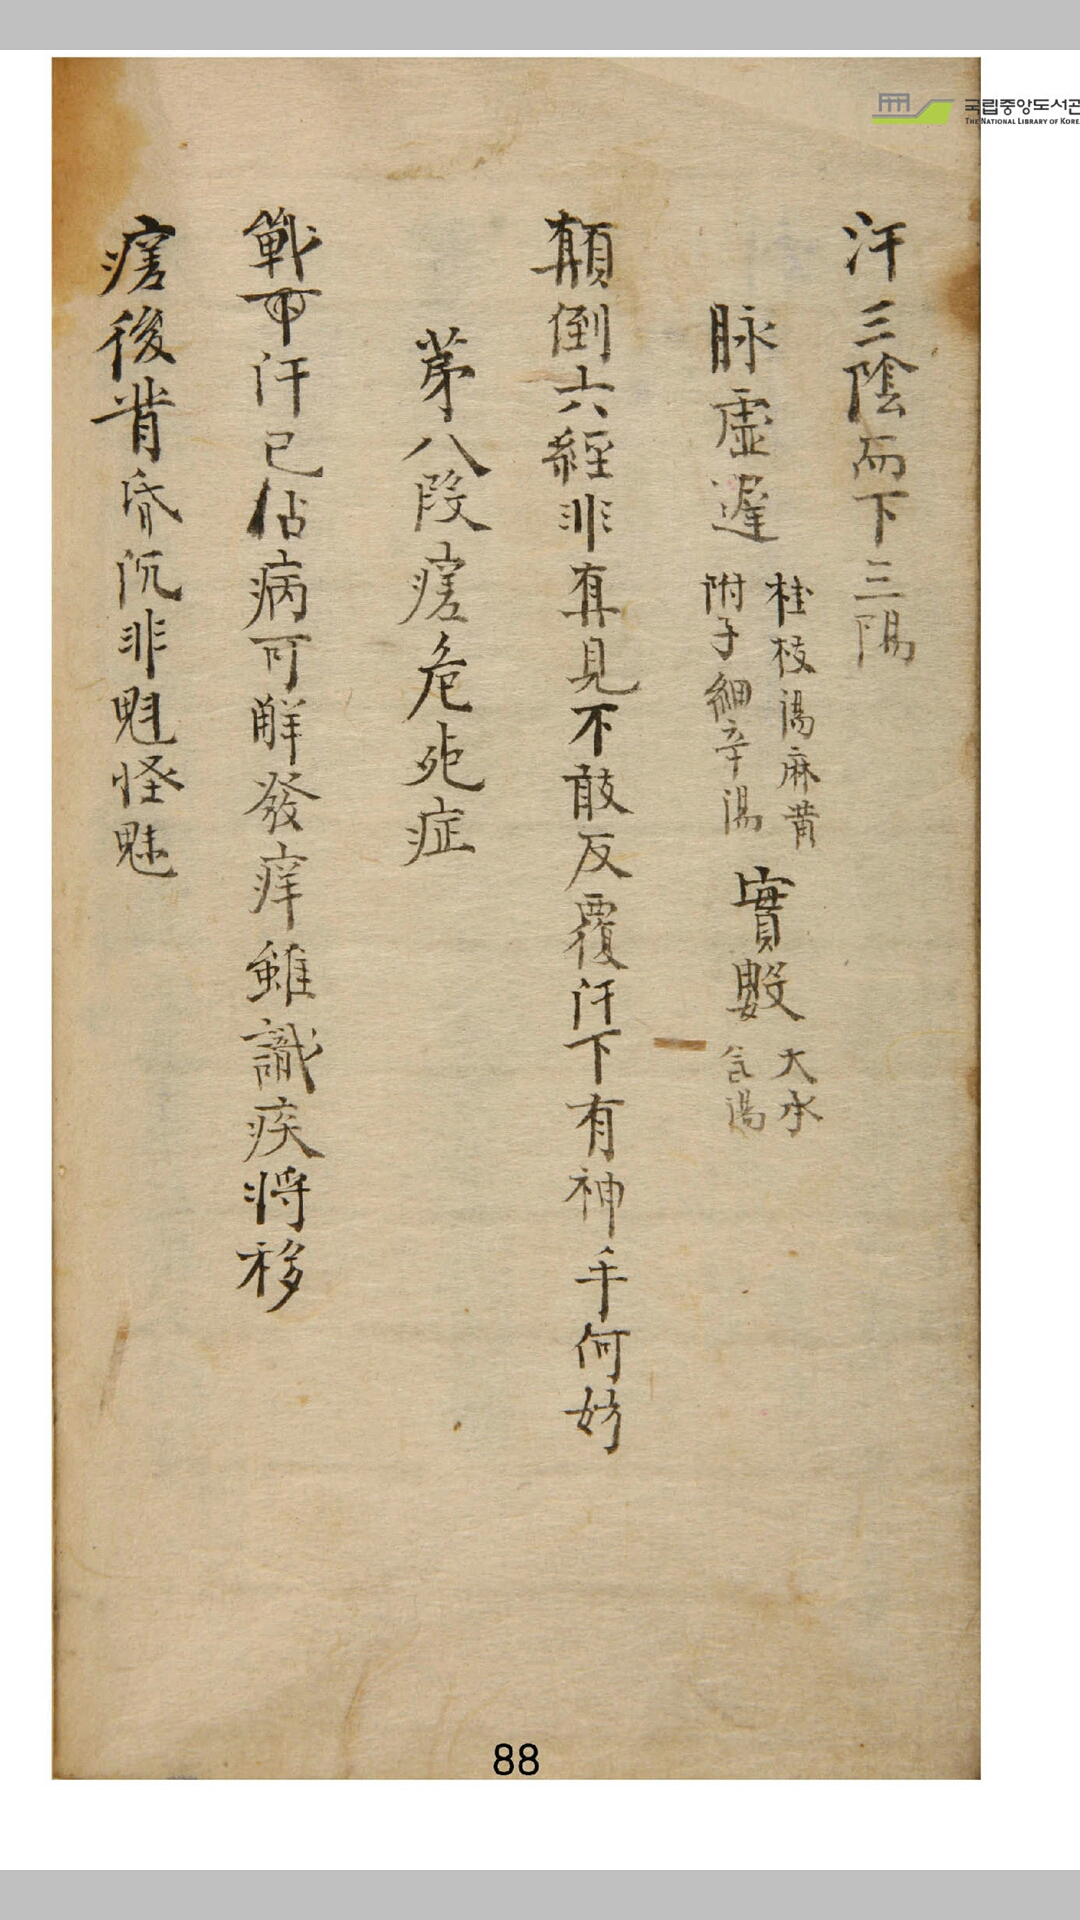 국립중앙도서관
THE NATIONAL LIBRARY OF KOREA
汗三陰而下三陽
脉虛遲 桂枝湯麻黃附子細辛湯 實數 大承氣湯
顛倒六經非真見不敢反覆汗下有神手何妨
苐八段瘥危死症
戰而汗已佔病可解發痒雖識疾將移
瘥後昏沉非魁怪魅
88